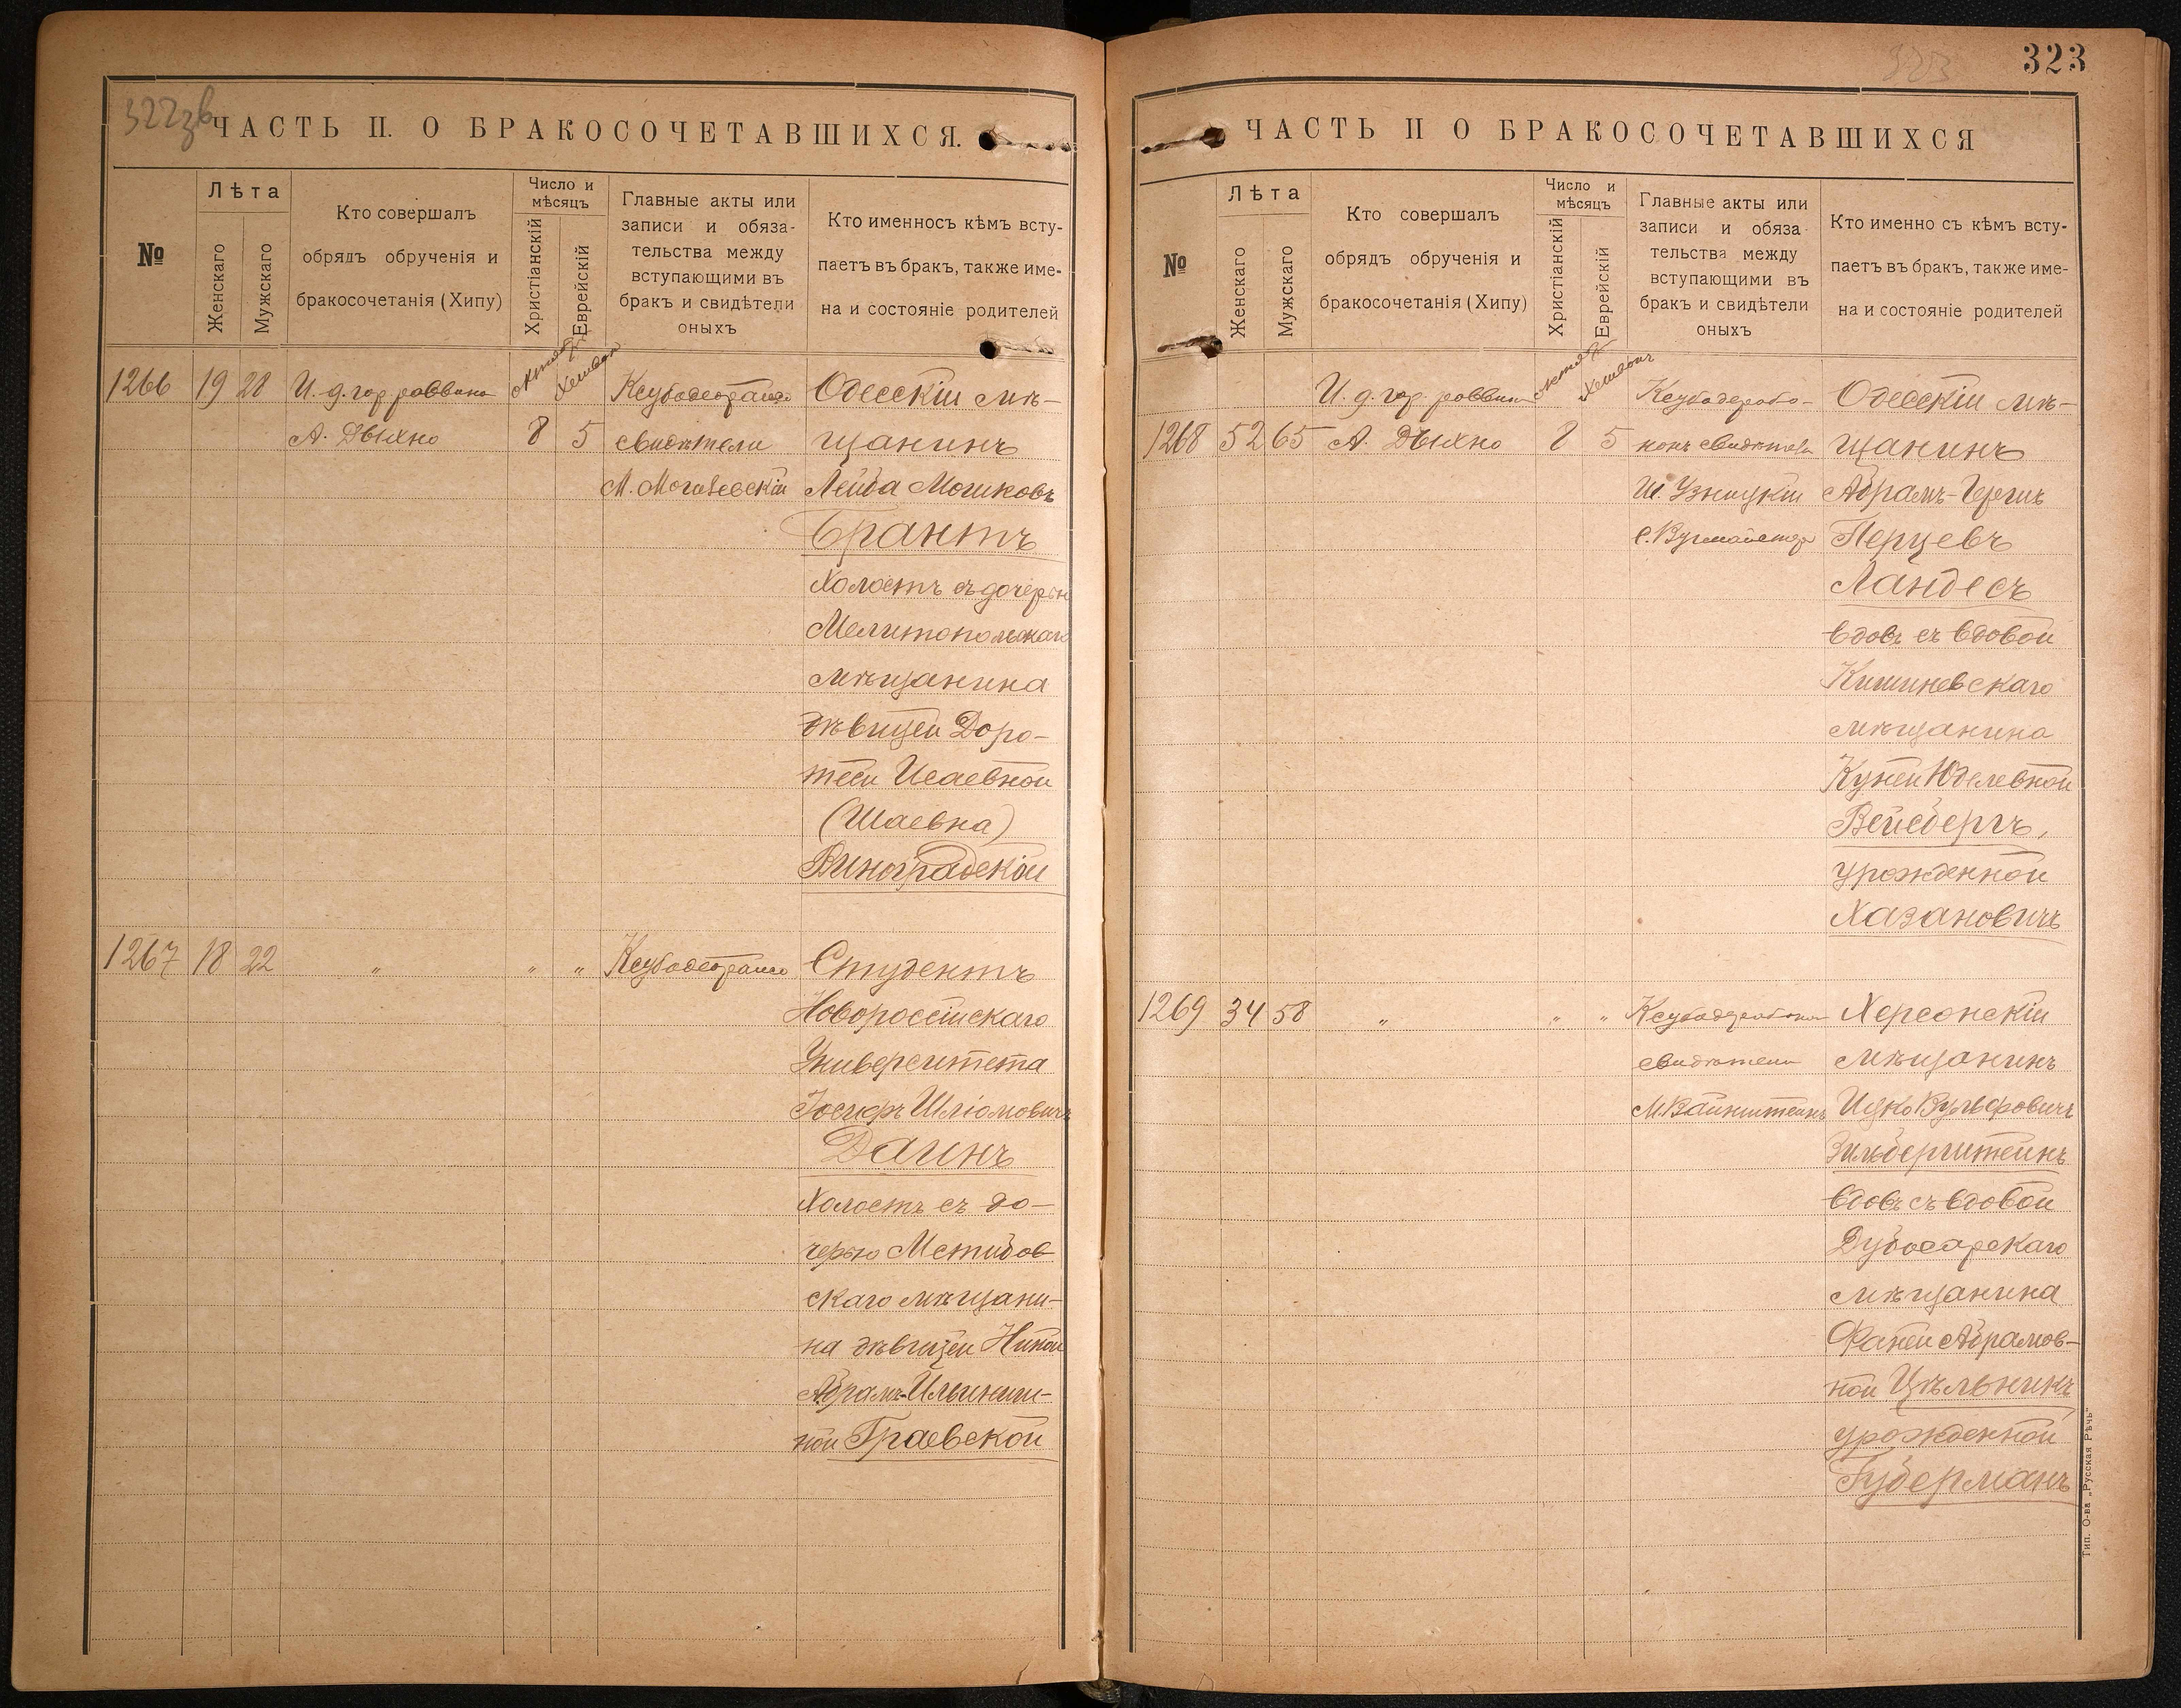 322зв
ЧАСТЬ II. О БРАКОСОЧЕТАВШИХСЯ.
№
Лѣта
Женскаго
Мужскаго
Кто совершалъ
обрядъ обрученія и
бракосочетанія (Хипу)
Число и
мѣсяцъ
Христіанскій
Еврейскій
Главные акты или
записи и обяза-
тельства между
вступающими въ
бракъ и свидѣтели
оныхъ
Кто именносъ кѣмъ всту-
паетъ въ бракъ, также име-
на и состояніе родителей
1266 19 28 И. д. гор. раввина Одесскій мѣ-
А. Дыхно 8 5 свидѣтели щанинъ
М. Могилевскій Лейба Мошковъ
Брантъ
холостъ съ дочерью
Мелитопольскаго
мѣщанина
дѣвицей Доро-
теей Исаевной
(Шаевна)
Виноградской
1267 18 22 „ „ „ Студентъ
Новороссійскаго
Университета
Іосифъ Шліомовичъ
Даинъ
холостъ съ до-
черью Мстислов
скаго мѣщани-
на дѣвицей Ниной
Абрамъ-Ильинич-
ной Граевской
323
323
ЧАСТЬ II О БРАКОСОЧЕТАВШИХСЯ
№
Лѣта
Женскаго
Мужскаго
Кто совершалъ
обрядъ обрученія и
бракосочетанія (Хипу)
Число и
мѣсяцъ
Христіанскій
Еврейскій
Главные акты или
записи и обяза
тельства между
вступающими въ
бракъ и свидѣтели
оныхъ
Кто именно съ кѣмъ всту-
паетъ въ бракъ, также име-
на и состояніе родителей
И. д. гор. раввина Одесскій мѣ-
1268 52 65 А. Дыхно 8 5 свидѣтели щанинъ
Абрамъ-Гершъ
Перцевъ
Ландесъ
вдовъ съ вдовой
Кишиневскаго
мѣщанина
Куней Юделевной
Вейсбергъ,
урожденной
Хазановичъ
1269 34 58 „ „ „ Херсонскій
свидѣтели мѣщанинъ
М. Вайнштейнъ Ицко Вульфовичъ
Зильберштейнъ
вдовъ съ вдовой
Дубосарскаго
мѣщанина
Фаней Абрамов-
ной Цѣльникъ
урожденной
Губерманъ
Тип. О-ва „Русская Рѣчь“